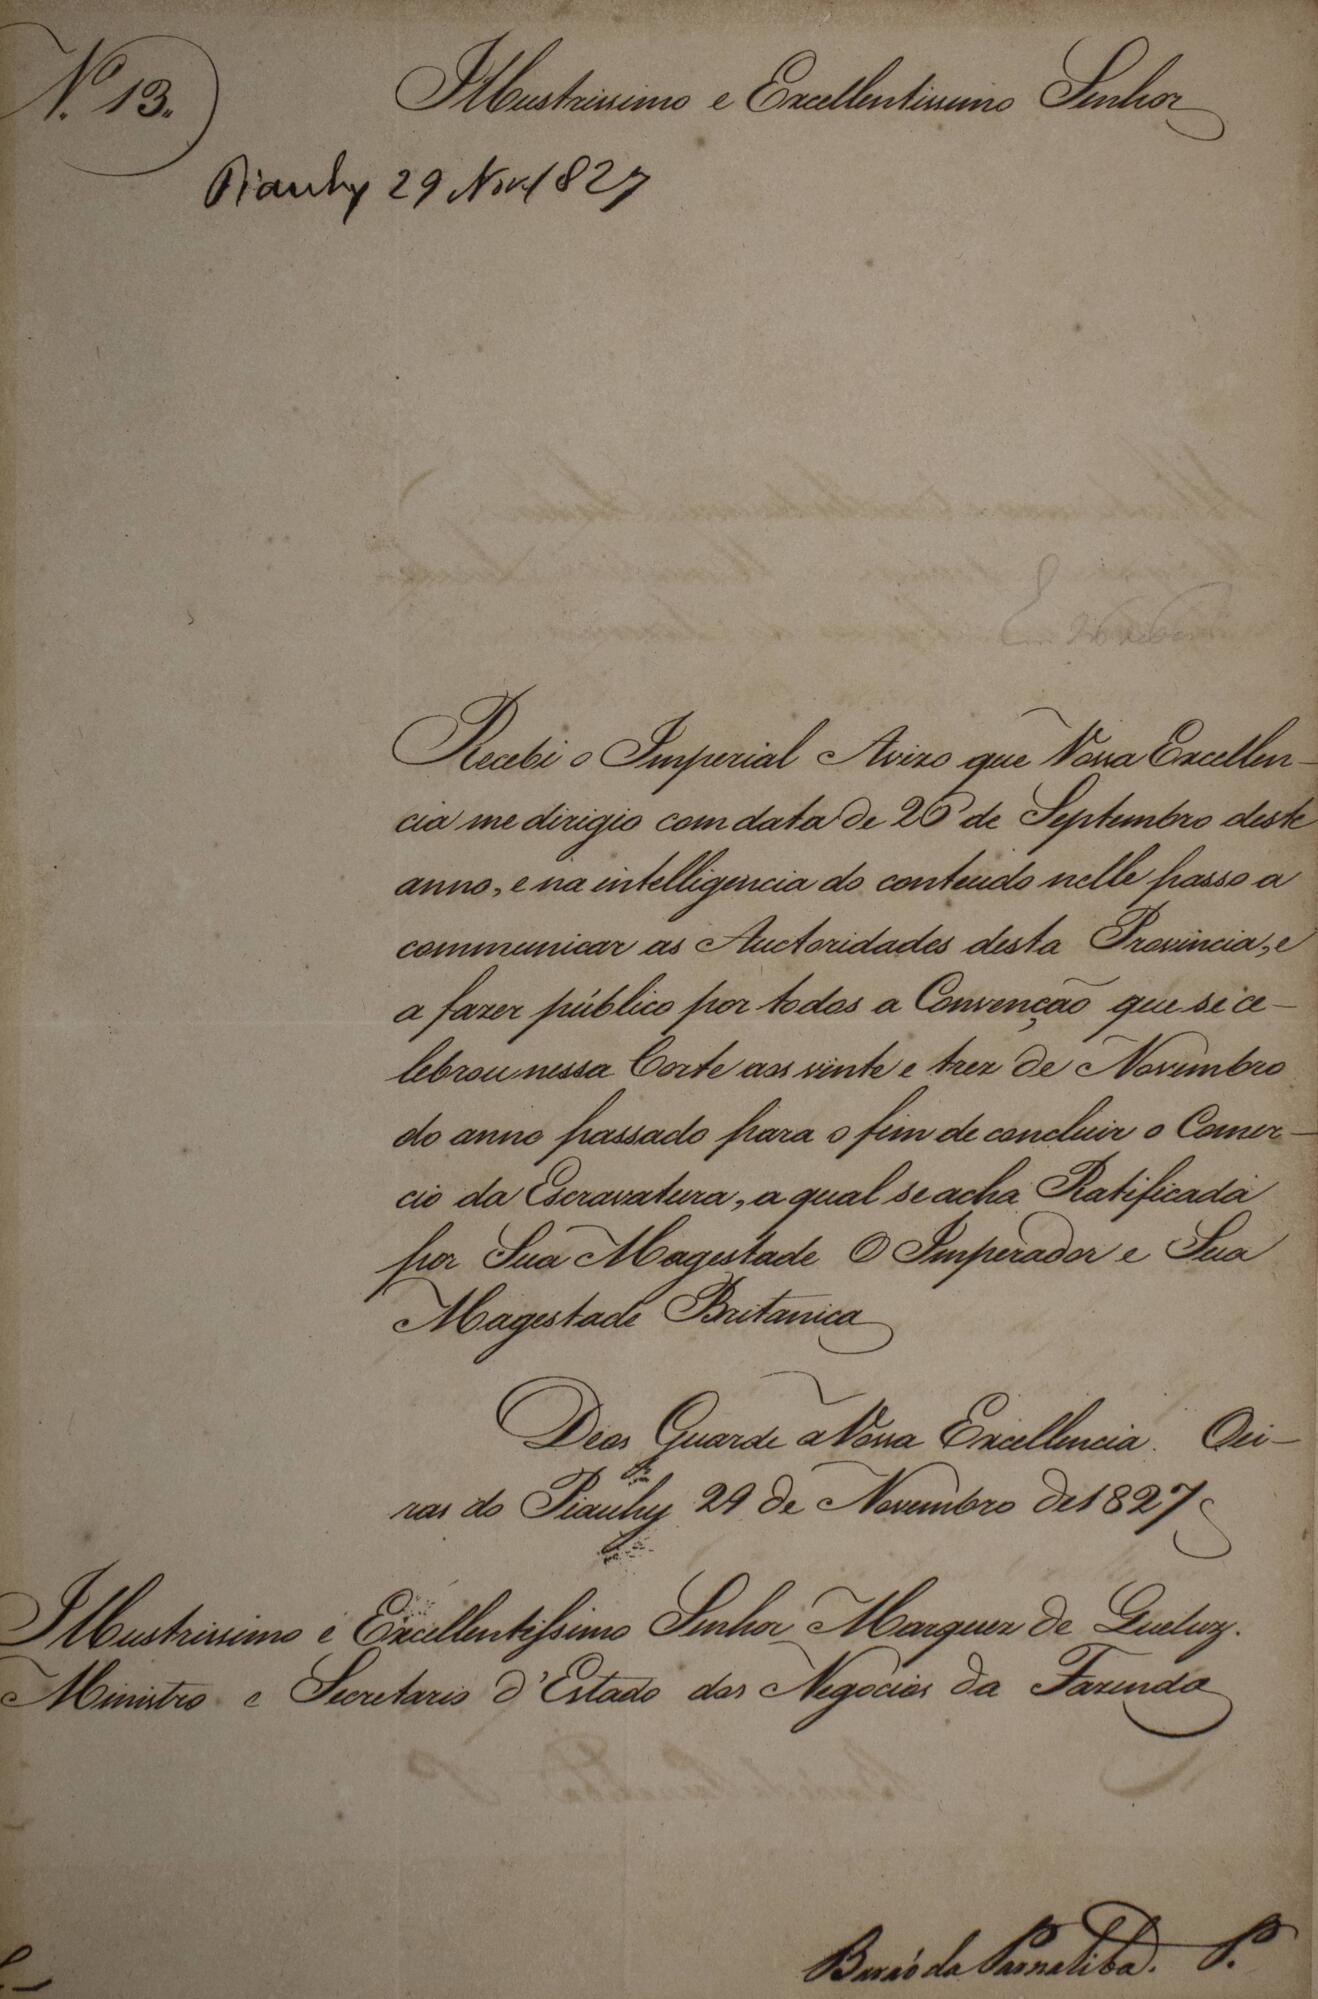 N.º 13.
Illustrissimo e Excellentissimo Senhor
Piauhy 29 Nov. 1827
Recebi o Imperial Avizo que Vossa Excellen-
cia me dirigio com data de 26 de Septembro deste
anno, e na intelligencia do conteúdo nelle passo a
communicar as Auctoridades desta Provincia, e
a fazer público por todos a Convenção que se ce-
lebrou nessa Corte aos vinte e trez de Novembro
do anno passado para o fim de concluir o Comer-
cio da Escravatura, a qual se acha Ratificada
por Sua Magestade O Imperador e Sua
Magestade Britanica
Deos Guarde a Vossa Excellencia. Oei-
ras do Piauhy 29 de Novembro de 1827
Illustrissimo e Excellentissimo Senhor Marquez de Queluz.
Ministro e Secretario d'Estado dos Negocios da Fazenda
Barão da Parnahiba. P.